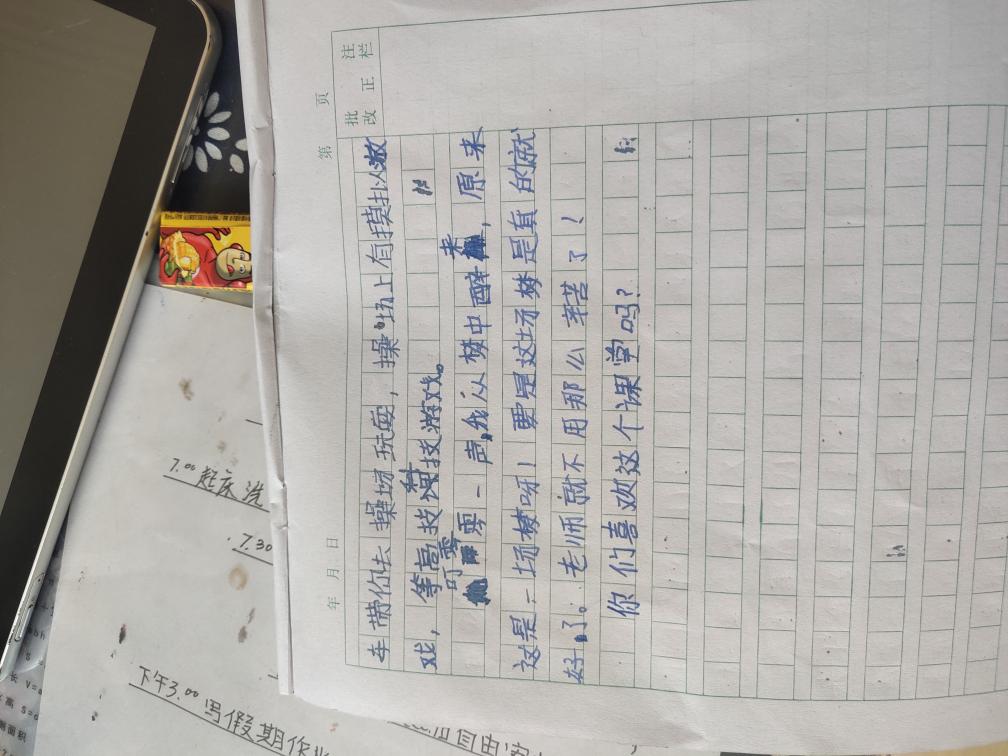 第 页
年 月 日
批改
正
注栏
车带你去操场玩耍，操场上有模拟激
戏，等高技科技游戏。
叮零零一声，我从梦中醉来，原来
这是一场梦呀！要是这场梦是真的就
好了。老师就不用那么辛苦了！
你们喜欢这个课学吗？
7.00起床洗
7.30
下午3.00写假期作业
自由